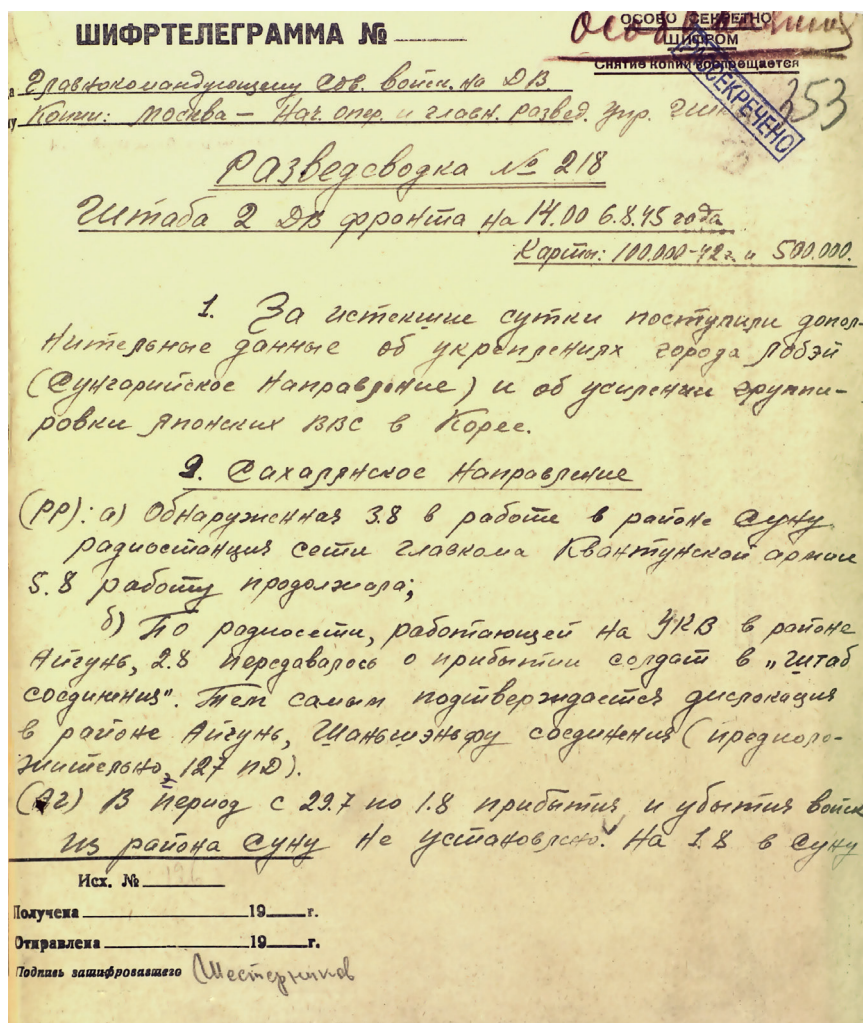 ШИФРТЕЛЕГРАММА №
ОСОБО СЕКРЕТНО
ШИФРОМ
Снятие копий воспрещается
РАССЕКРЕЧЕНО
353
Главнокомандующему Сов. войск. на ДВ.
Копии: Москва – Нач. опер. и главн. развед. упр.
Разведсводка № 218
Штаба 2 ДВ фронта на 14.00 6.8.45 года
Карты: 100.000-42г. и 500.000.
1. За истекшие сутки поступили допол-
нительные данные об укреплениях города Лобэй
(Сунгарийское направление) и об усилении группи-
ровки японских ВВС в Корее.
2. Сахалянское направление
(РР): а) Обнаруженная 3.8 в работе в районе Суну
радиостанция сети главкома Квантунской армии
5.8 работу продолжала;
б) По радиосети, работающей на УКВ в районе
Айгунь, 2.8 передавалось о прибытии солдат в „штаб
соединения". Тем самым подтверждается дислокация
в районе Айгунь, Шаньшэньфу соединения (предполо-
жительно, 127 пД).
(Аг) В период с 29.7 по 1.8 прибытия и убытия войск
из района Суну не установлено. На 1.8 в Суну
Исх. №
Получена 19 г.
Отправлена 19 г.
Подпись зашифровавшего Шестерников